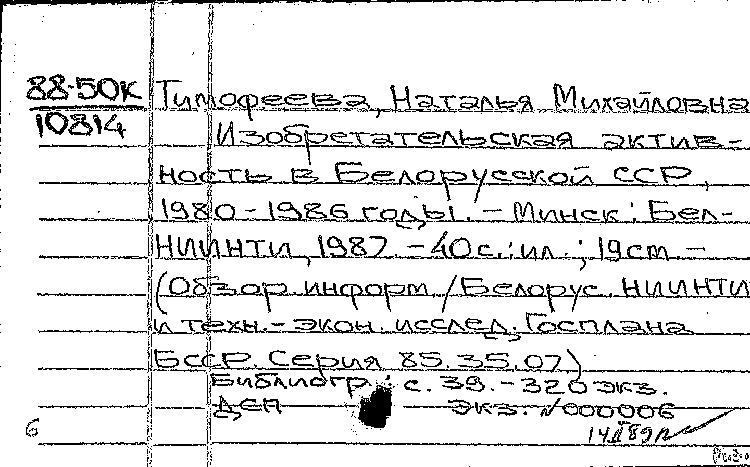 88-50К Тимофеева, Наталья Михайловна
10814 Изобретательская актив-
ность в Белорусской ССР,
1980-1986 годы. - Минск: Бел-
НИИНТИ, 1987. - 40 с.: ил.; 19 см. -
(Обзор. информ. / Белорус. НИИНТИ
и техн.-экон. исслед. Госплана
БССР. Серия 85.35.07)
Библиогр.: с. 39. - 320 экз.
ДСП экз. №000006
6